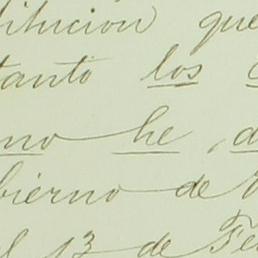 titucion que
tanto los
no he, d
bierno de
el 13 de Fe